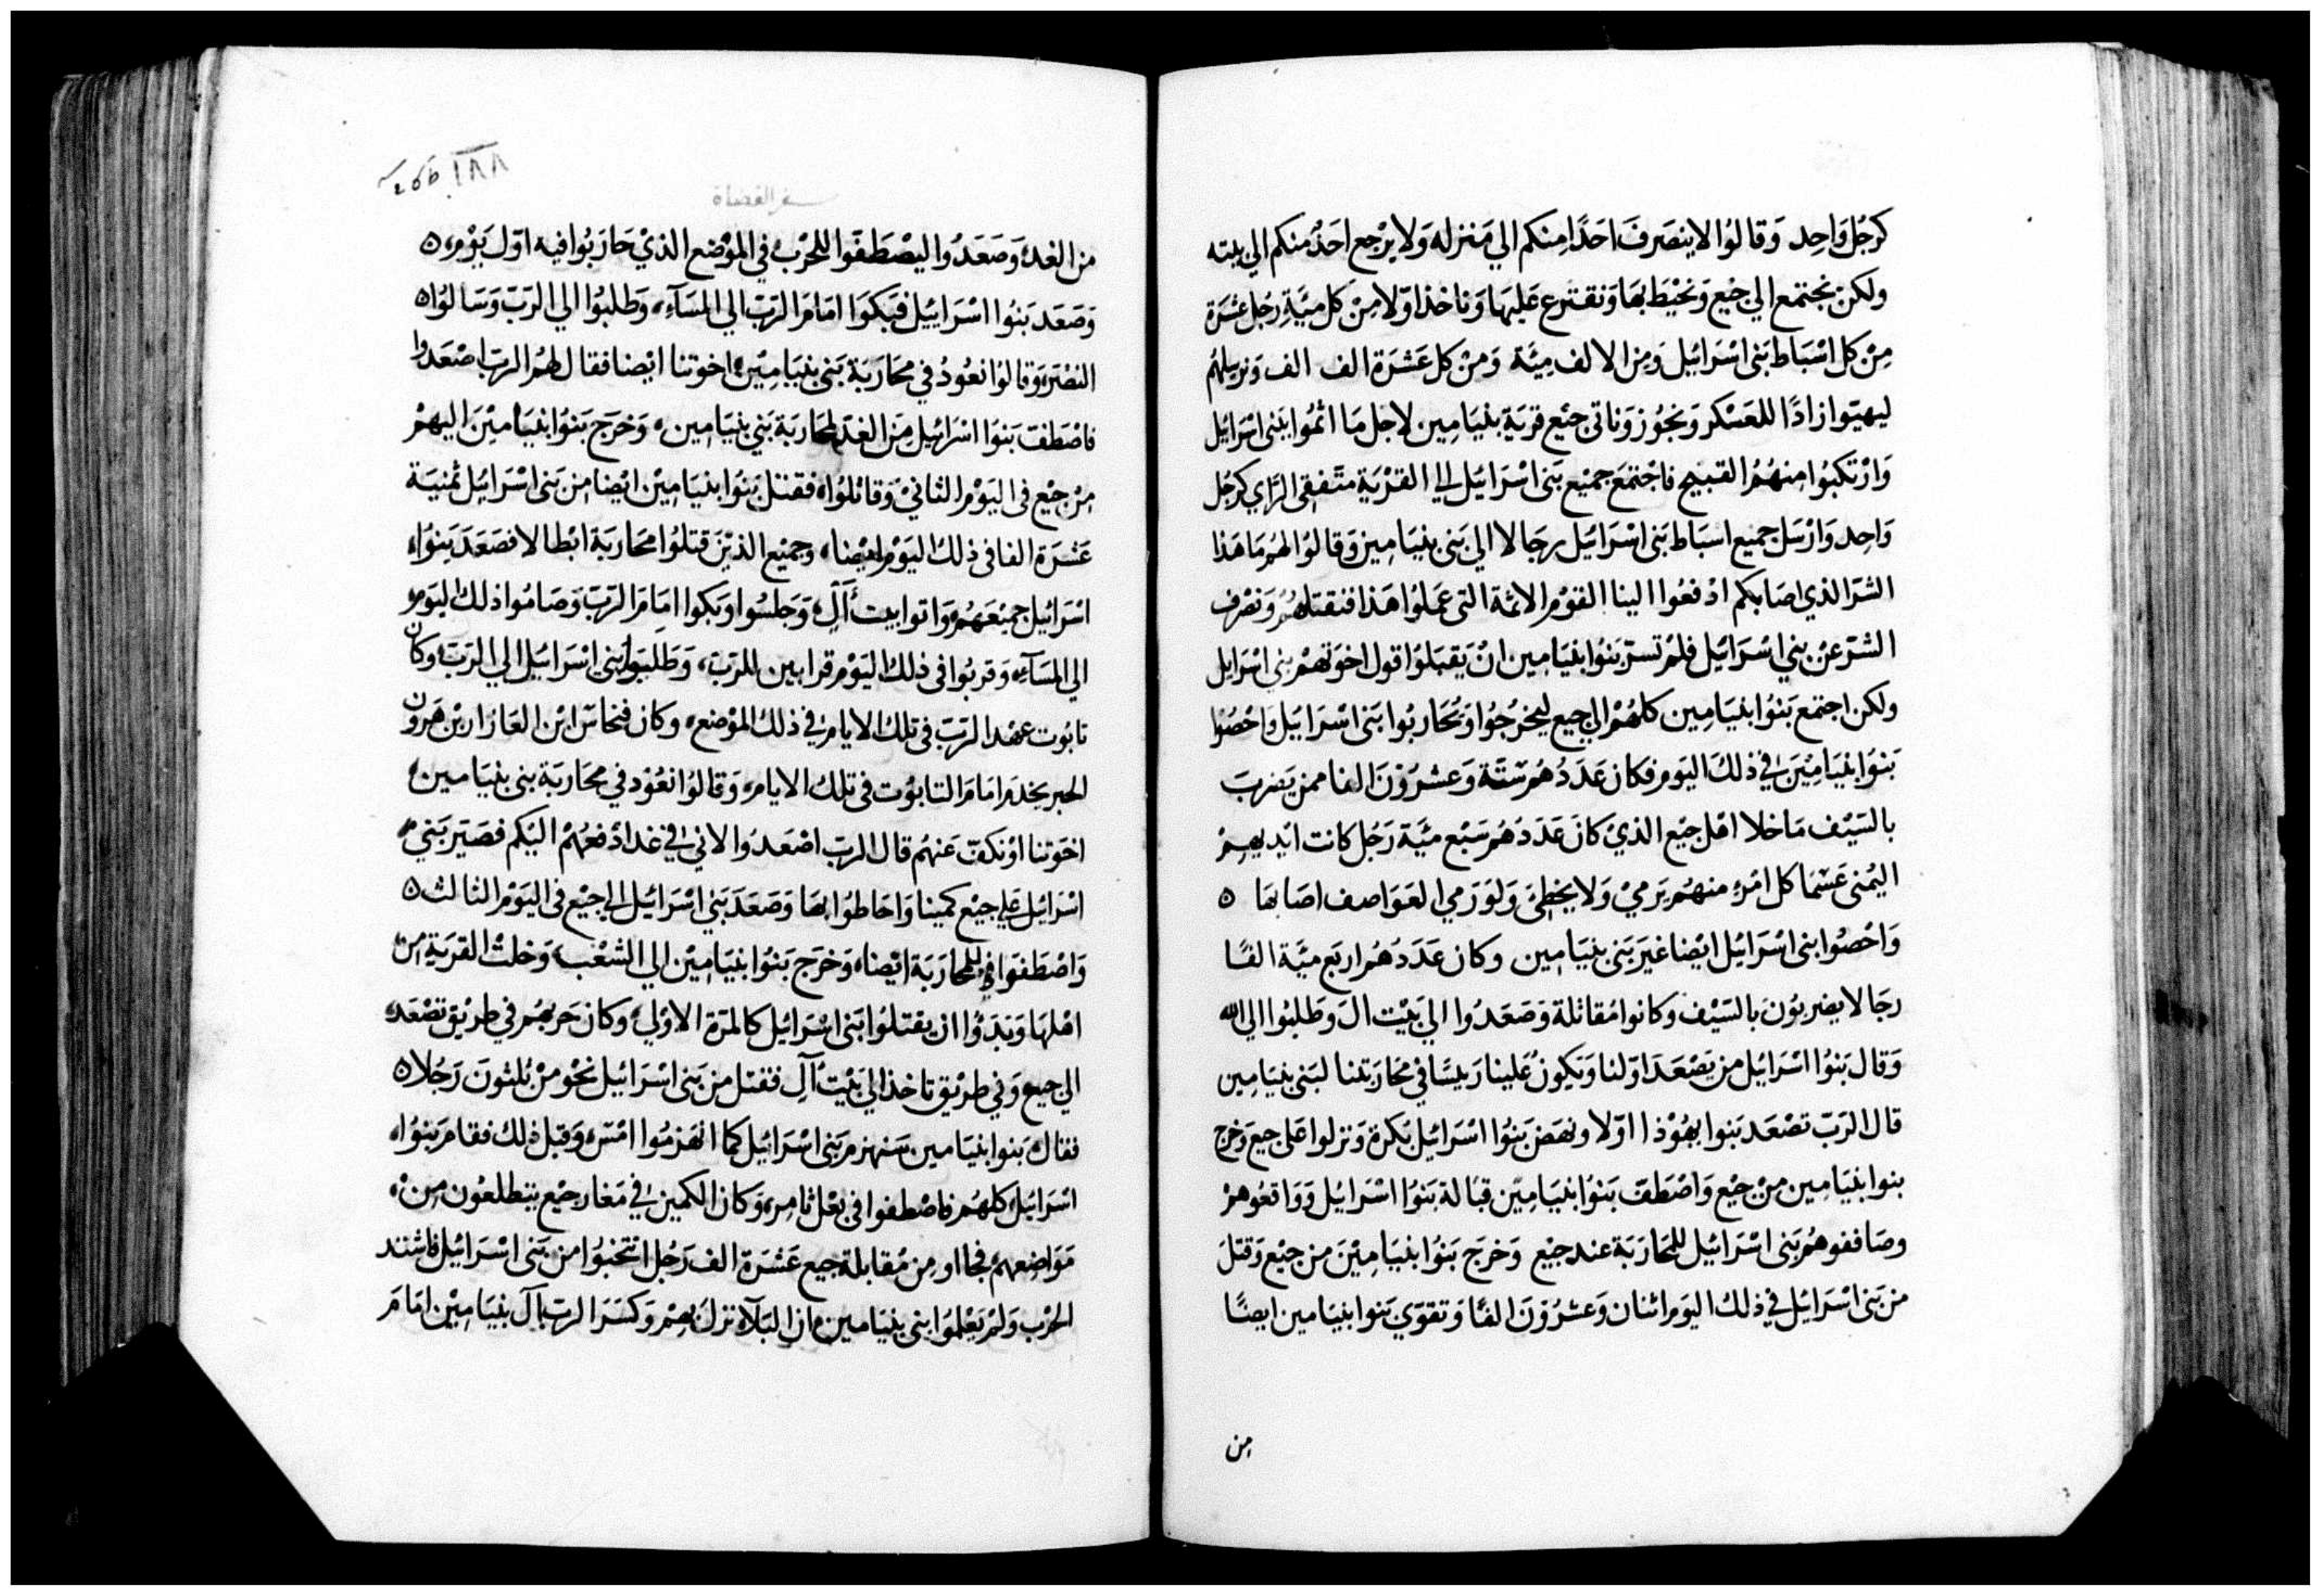 كرجُل وَاحِد وَقالوُا لا ينصَرفَ احَدًا منكم الي مَنزله وَلا يرْجع احَدٌ منكم الي بيته
ولكن نجتمع الي جبْع وَنحيْط بهَا وَنقترع عَليهَا وَناخذ اوّلا مِنْ كل ميَّةِ رجُل عشَرَة
مِنْ كل اسْبَاط بَني اسْرَائيل وَمِن الالف مِيَّة وَمنْ كل عَشرَة الف الف وَنرسلهُم
ليهيَوا زادًا للعَسْكر وَنجُوز وَناتي جبْع قريَة بنيَامِين لاجل مَا اثمُوا ببَني اسْرَائيل
وَارْتكبُوا منهُمُ القبيح فاجْتمَعَ جميْع بَني اسْرَائيل الي القرْيَة متَفقي الرَّاي كرجُل
وَاحِد وَارْسَل جميع اسبَاط بَني اسْرَائيل رجَالا الي بَني بنيَامِين وَقالوُا لهُم مَا هَذا
الشرّ الذي اصَابكم ادْفعُوا الينا القوْم الاثمة التي عَملوُا هَذا فنقتلهُمْ وَنصْرف
الشرّ عنْ بني اسْرَائيل فلمْ تسرّ بَنوُا بنيَامِين انْ يَقبَلوُا قول اخوَتهمْ بني اسْرَايل
ولكن اجتمع بَنوُا بنيَامِين كلهُمْ الي جبع ليخرجُوا وَيُحَاربُوا بَني اسْرَايَيل وَاحْصُوا
بَنوُا بنيَامِيْنَ في ذلكَ اليَوم فكان عَدَدُهُم سَتَة وَعشرُوْنَ الفا ممن يَضربَ
بالسَيْف مَاخلا اهْل جبْع الذيْ كانَ عَدَدَهُم سَبْع ميَّة رَجُل كانت ايْديهِمْ
اليُمْني عَسْمَا كل امْرءٍ منهُم يَرميْ وَلا يخطيْ وَلوَ رَمي العَوَاصف اصَابهَا ٥
وَاحْصُوا بني اسْرَائيل ايْضا غيرَ بَني بنيَامِين وكان عَدَدَهُم اربَع ميَّة الفًا
رجَالا يضربُونَ بالسَيْف وكانوا مُقاتلة وَصَعَدُوا الي بَيْت ال وَطلبُوا الي الله
وَقال بَنوُا اسْرَائيل من يَصْعَدَ اوّلنا وَيَكونُ عَلينا رَييسًا في محَارَبَتنا لبَني بنيَامِين
قال الرَبّ تصْعَد بَنوا يهُوْذا اوّلا ونهَضَ بَنوُا اسْرَائيل بَكرة وَنزلوا عَلى جبع وَخرج
بنوا بنيَامِين منْ جبْع وَاصْطَفّ بَنوُا بنيَامِيّن قبَالة بَنوُا اسْرَايُيل وَوَاقعُوهمْ
وصَافقوهُم بَني اسْرَائيل للمحَارَبَة عند جبْع وَخرَج بَنوُا بنيَامِيْنَ من جبْع وَقتلَ
من بَني اسْرَائيل في ذلكَ اليَوم اثنان وَعشرُوْنَ الفًا وَتقوّي بَنوا بنيَامِين ايضًا
من
٢٨٨ 266
سفر القضاة
من الغد وَصَعَدُوا ليصْطَفوا للحَرْب في الموْضع الذيْ حَارَبُوا فيه اوّل يَوْم ٥
وَصَعَد بَنوُا اسْرَائيُل فبَكوَا امَامَ الرَبّ الي المسَآءِ وَطلبُوا الي الرَبّ وَسَالوُا ٥
النصْرَة وَقالوُا نعُودُ في محَارَبَة بَني بنيَامِيْن اخوَتنا ايْضا فقال لهُم الرَبّ اصْعَدُوا
فاصْطَفّ بَنوُا اسْرَائيل مِن الغدَ لمحَارَبَة بَني بنيَامِين، وَخرَج بَنوُا بنيَامِيْنَ اليهمْ
منْ جبْع في اليَوْم الثانيْ وَقاتلوُا فقتل بَنوُا بنيَامِيْن ايْضا من بَني اسْرَائيل ثمنيَة
عَشرَة الفا في ذلك اليَوْم ايْضا، وجميْع الذيْنَ قتلوُا محَارَبَة ابْطالا فصَعَدَ بَنوُا
اسْرَائيل جميْعَهُم وَاتوا بيت أَلِ وَجَلسُوا وَبَكوا امَامَ الرَبّ وَصَامُوا ذلك اليَوم
الي المسَآءِ وَقربُوا في ذلك اليَوْم قرابين للرَبّ، وَطَلبَوا بَني اسْرَائيل الي الرَبّ وكان
تابُوت عهْد الرَبّ في تلك الايام في ذلك الموْضع، وكان فنحاسَ ابْن العَازار بْن هَرون
الحبر يخدم امَامَ التابوُت في تلك الايام، وَقالوُا نعُوْد في محَارَبَة بني بنيَامِين
اخوَتنا اوْ نكفّ عَنهُم قال الرَبّ اصْعَدُوا لاني في غدا ادْفعُهُمْ اليْكم فصَيَّر بَني
اسْرَائيل عَلي جبْع كمينا وَاحَاطوُا بهَا وَصَعَدَ بَني اسْرَائيل الي جبْع في اليَوْم الثالث ٥
وَاصْطَفوَا للمحَارَبَة ايْضا، وَخرَج بَنوُا بنيَامِيْن الي الشعْب وَخلتْ القرَيَة من
اهْلهَا وَبَدَؤُا ان يقتلوُا بَني اسْرَائيل كالمَرّة الاوْلي، وكان حَربهُم في طريْق تصْعَد
الي جبع وَفي طريْق تاخذ الي بَيْتْ آلِ فقتل من بَني اسْرَائيل نحْو منْ ثلثونَ رَجُلا ٥
فقال بَنوا بنيَامِين سَنهزم بَني اسْرَائيل كما انهَزمُوا امْسَ وَقبل ذلك فقامَ بَنوُا
اسْرَائيل كلهُم فاصْطفوا في بعْل ثامر، وَكان الكمين في مَغار جبْع يتطلعُون منْ
مَوَاضعهمْ فجااو مِنْ مُقابلة جبع عَشَرَة الف رَجُل انتخبُوا من بَني اسْرَائيل فاشتد
الحَرْب وَلمْ يَعْلموُا بَني بنيَامِين ان البَلآء نزل بهمْ وَكسَرَ الرَبّ آلَ بنيَامِيْن امَامَ